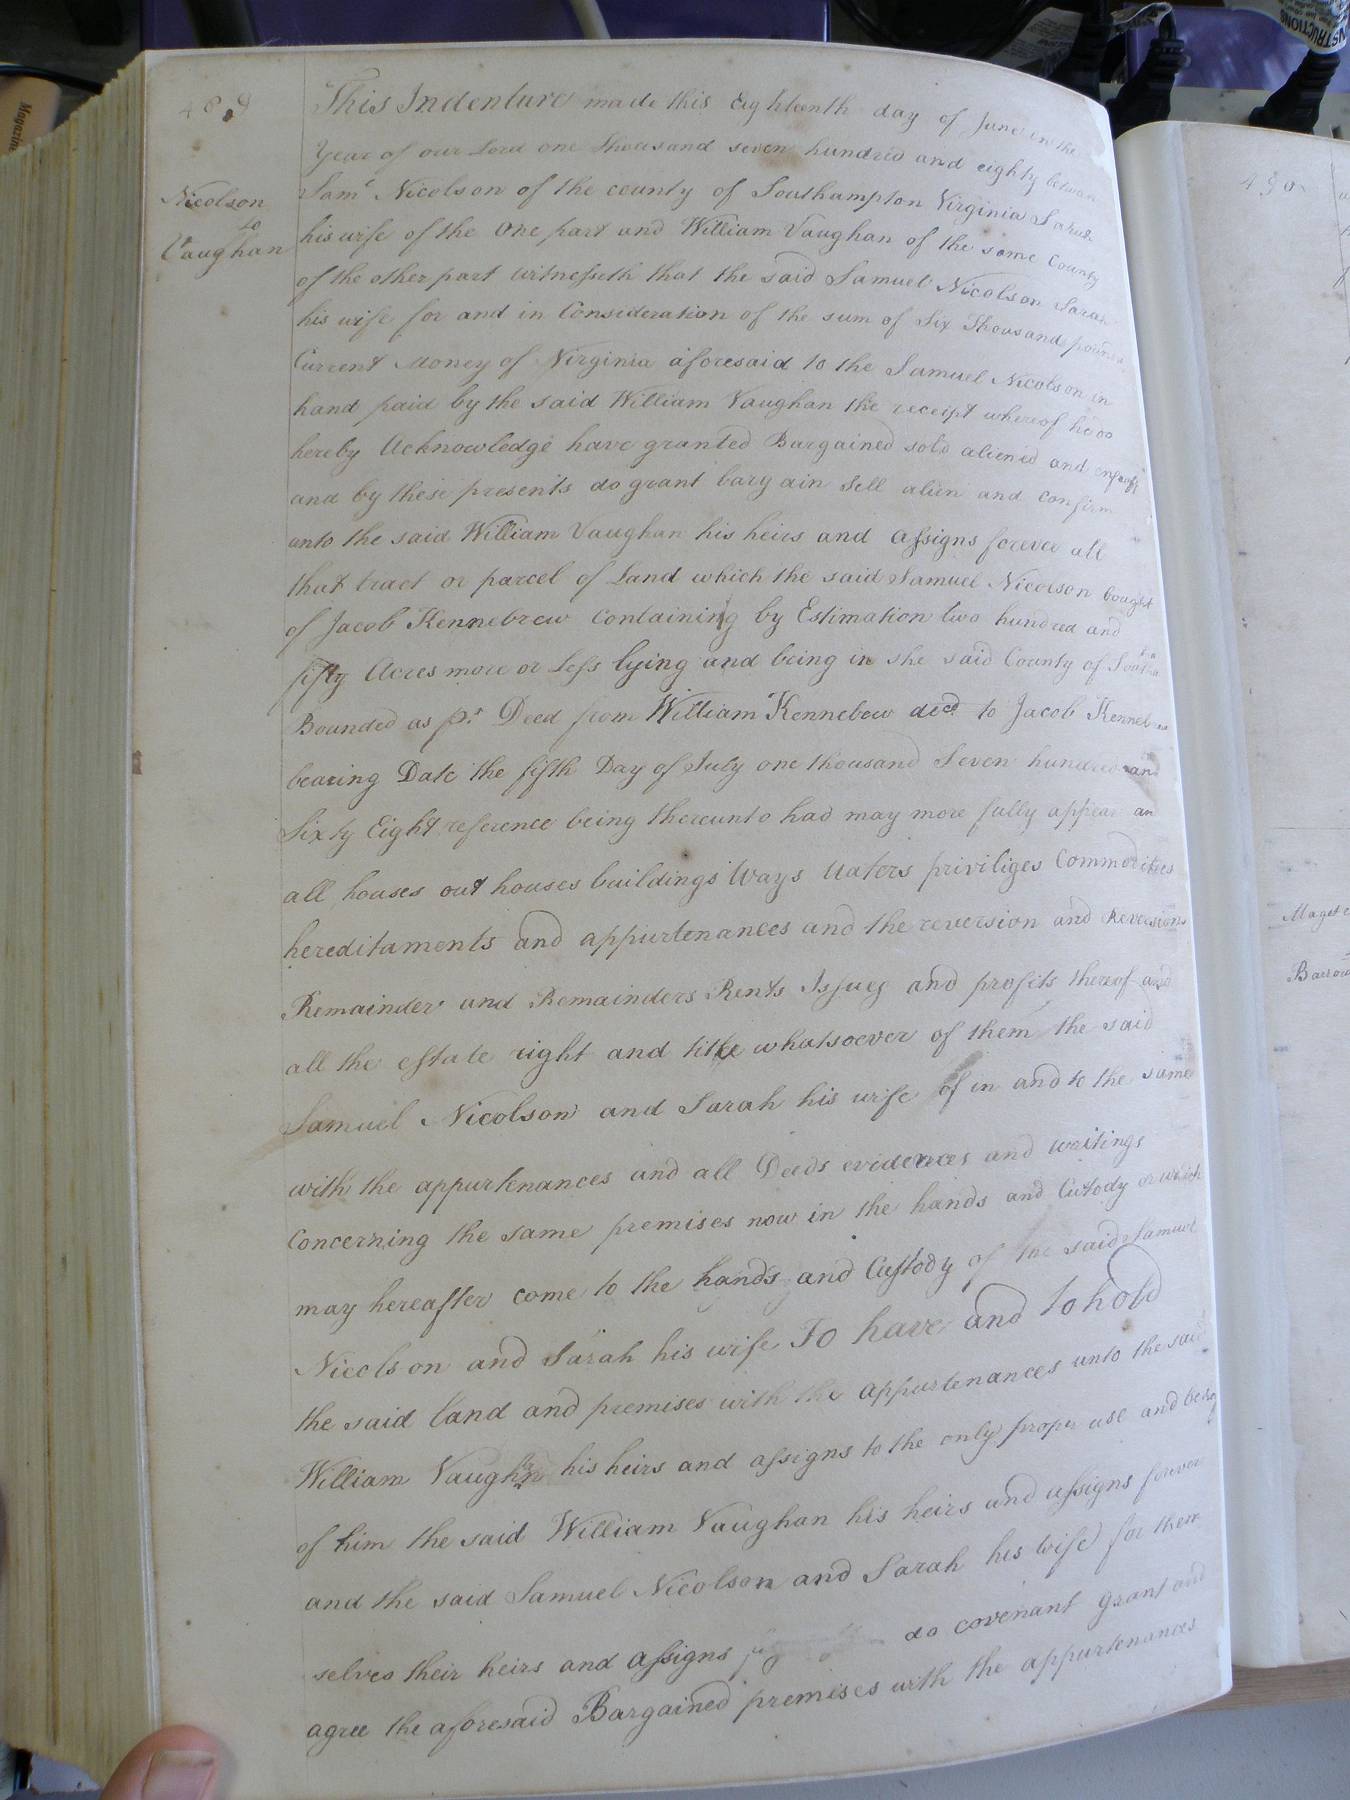 489
Nicolson
to
Vaughan
This Indenture made this Eighteenth day of June in the
Year of our Lord one thousand seven hundred and eighty between
Samˡ Nicolson of the county of Southampton Virginia Sarah
his wife of the One part and William Vaughan of the same County
of the other part Witnesseth that the said Samuel Nicolson Sarah
his wife for and in Consideration of the sum of Six Thousand pounds
Current Money of Virginia aforesaid to the Samuel Nicolson in
hand paid by the said William Vaughan the receipt whereof he do
hereby Acknowledge have granted Bargained sold aliened and
and by these presents do grant bargain Sell alien and confirm
unto the said William Vaughan his heirs and assigns forever all
that tract or parcel of Land which the said Samuel Nicolson bought
of Jacob Kennebrew Containing by Estimation two hundred and
fifty Acres more or Less lying and being in the said County of
Bounded as pʳ Deed from William Kennebew decᵈ to Jacob
bearing Date the fifth Day of July one thousand Seven hundred and
Sixty Eight reference being thereunto had may more fully appear an
all houses out houses buildings Ways Waters priviliges Commodities
hereditaments and appurtenances and the reversion and Reversions
Remainder and Remainders Rents Issues and profits thereof and
all the estate right and title whatsoever of them the said
Samuel Nicolson and Sarah his wife of in and to the same
with the appurtenances and all Deeds evidences and writings
Concerning the same premises now in the hands and Cutody or which
may hereafter come to the hands and Custody of the said Samuel
Nicolson and Sarah his wife To have and to hold
the said land and premises with the appurtenances unto the said
William Vaughn his heirs and assigns to the only proper use and
of him the said William Vaughan his heirs and assigns forever
and the said Samuel Nicolson and Sarah his wife for them
selves their heirs and assigns do covenant grant and
agree the aforesaid Bargained premises with the appurtenances
490
Maget
INSTRUCTIONS
Magazine